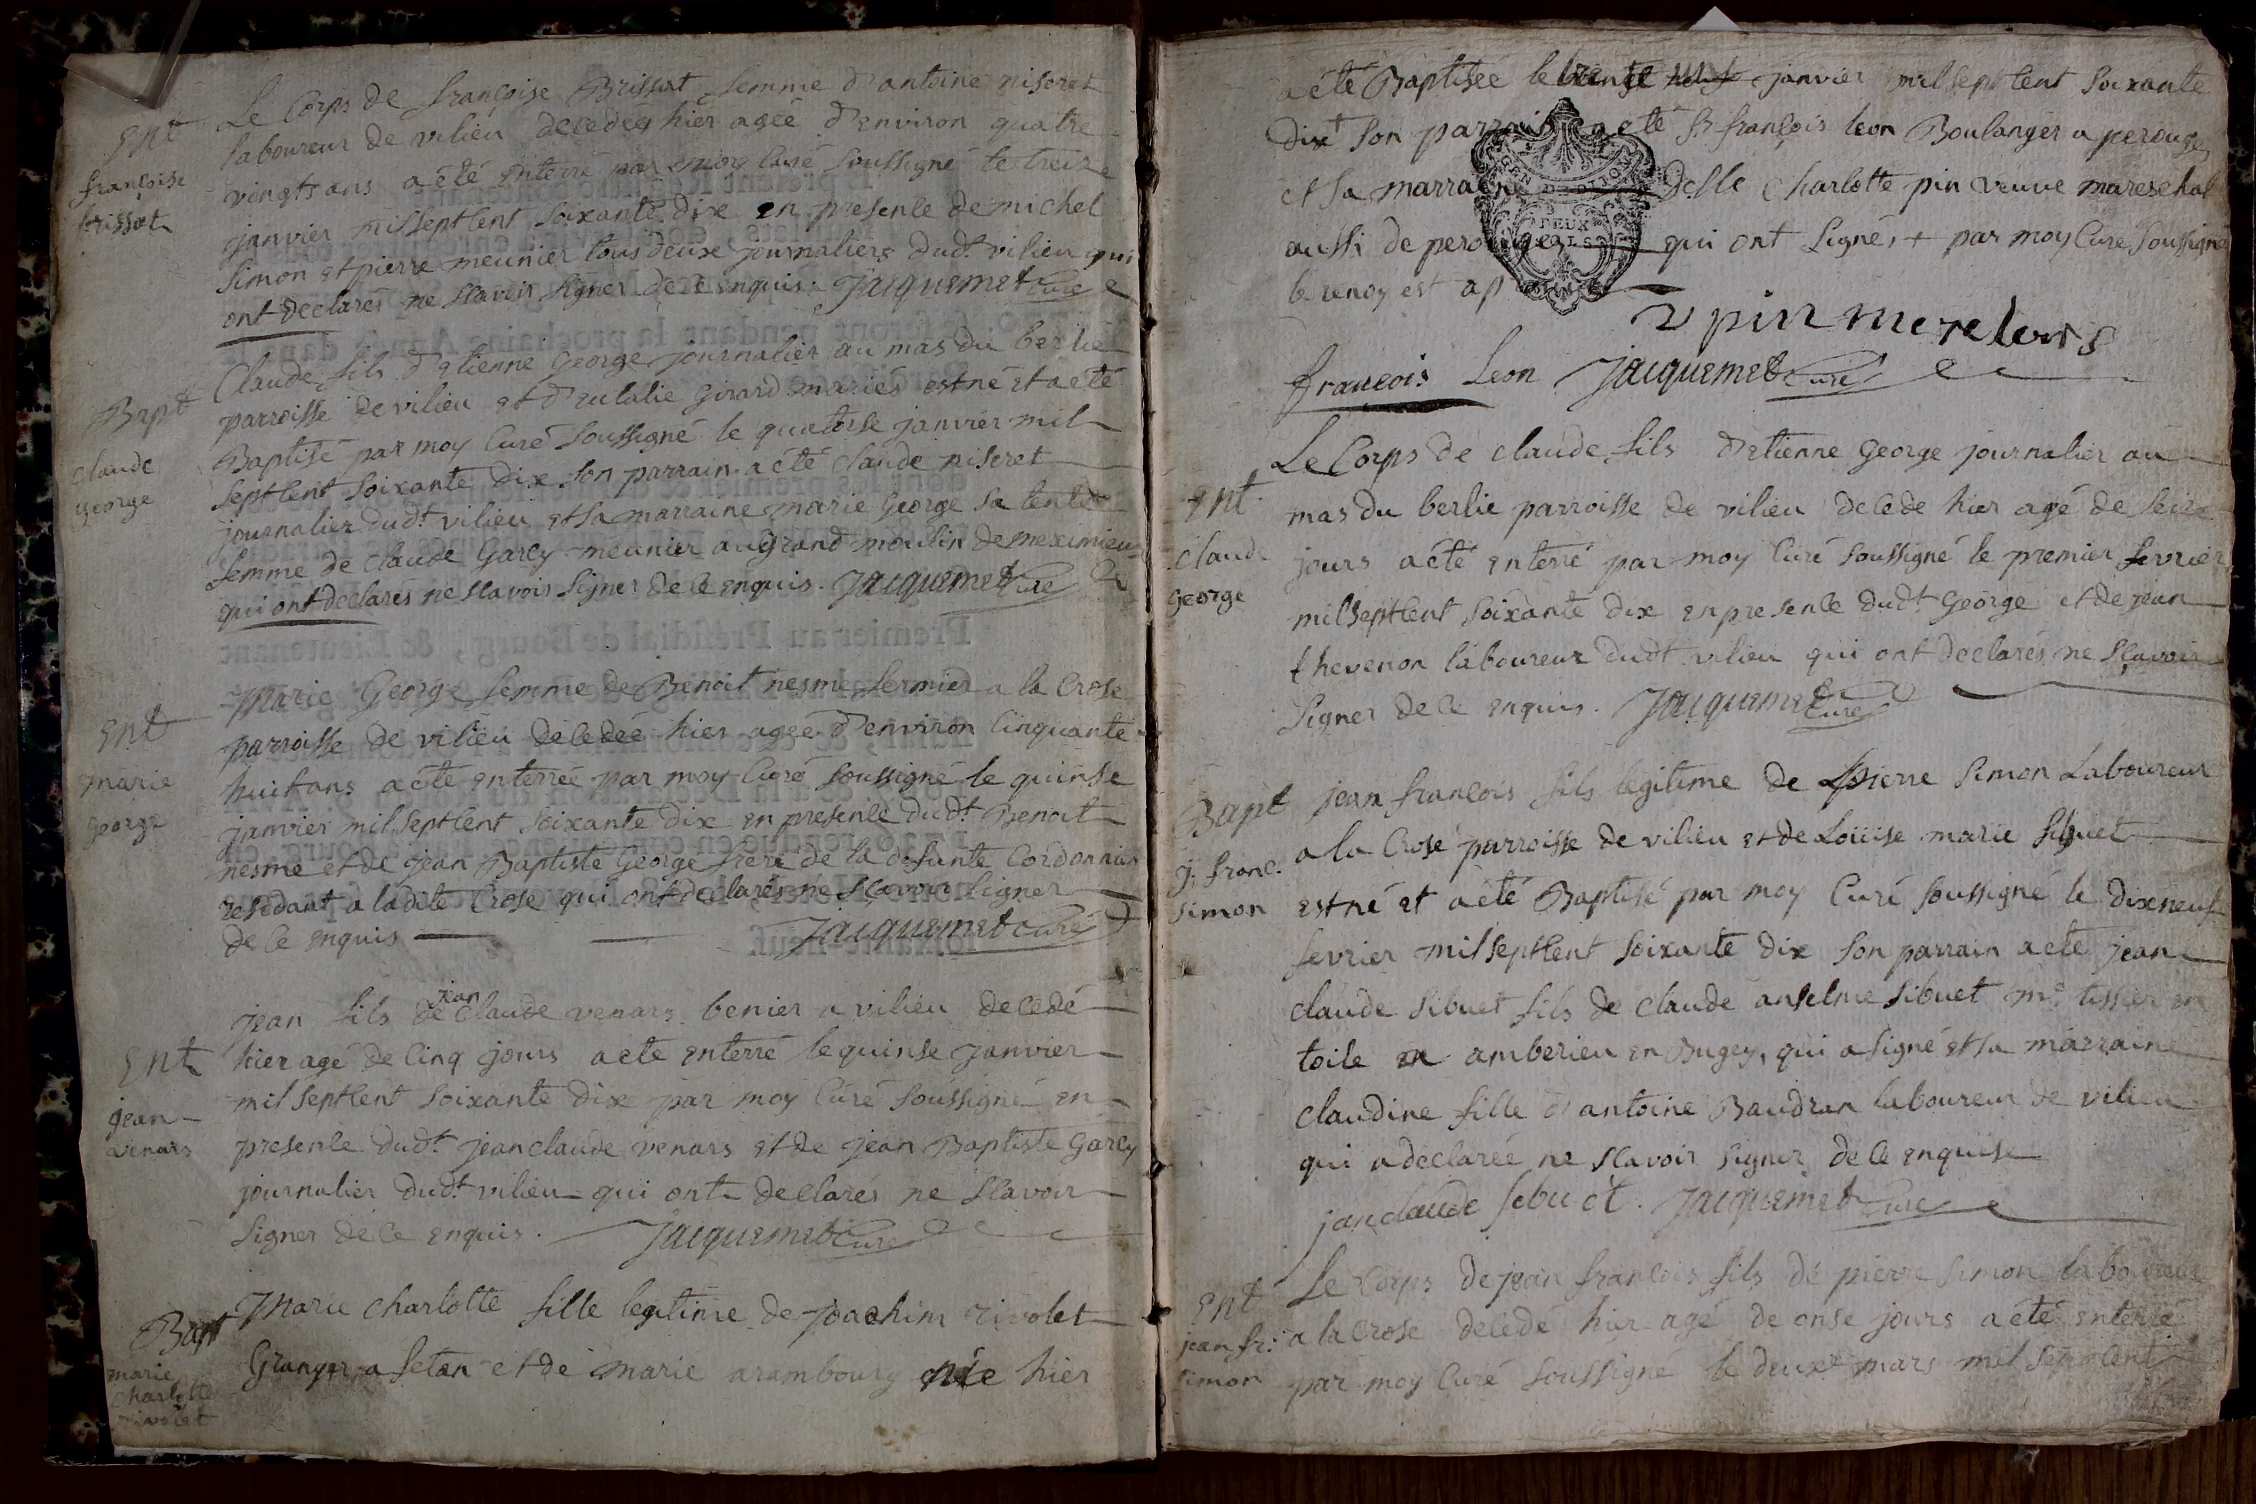 Ent
françoise
brissat
Le Corps de françoise Brissat femme d'antoine niseret
laboureur de vilieu decedée hier agée d'environ quatre
vingts ans a été enterré par moy Curé soussigné le treize
janvier milseptcent soixante dix en presence de michel
simon et pierre meunier tous deux journaliers dudt vilieu qui
ont declarés ne scavoir signer de ce enquis. Jacquemet Curé
Bapt
claude
george
Claude fils d'etienne George journalier au mas du berlie
parroisse de vilieu et d'eulalie Girard mariés est né et a été
Baptisé par moy Curé soussigné le quatorse janvier mil
septcent soixante dix son parrain a été claude niseret
journalier dudt vilieu et sa marraine marie George sa tente
femme de claude Garcy meunier au Grand moulin de meximieu
qui ont declarés ne scavoir signer de ce enquis. Jacquemet Curé
Ent
marie
george
Marie George femme de Benoit nesme fermier a la Crose
parroisse de vilieu decedée hier agée d'environ Cinquante
huit ans a été enterrée par moy Curé soussigné le quinse
janvier mil septcent soixante dix en presence dudt Benoit
nesme et de jean Baptiste George frere de la defunte Cordonnier
residant a ladite Crose qui ont declarés ne scavoir signer
de ce enquis Jacquemet Curé
Ent
jean
venars
jean
jean fils de Claude venars benier a vilieu decedé
hier agé de Cinq jours a ete enterré le quinse janvier
mil septcent soixante dix par moy Curé soussigné en
presence dudt jean claude venars et de jean Baptiste Garcy
journalier dudt vilieu qui ont declarés ne scavoir
signer de ce enquis. Jacquemet Curé
Bapt
marie
charlotte
rivolet
Marie charlotte fille legitime de joachim rivolet
Granger a fetan et de marie arambourg née hier
a été Baptisée le trente janvier mil septcent soixante
dix son parrain a eté sr françois leon Boulanger a perouges
et sa marraine Delle Charlotte pin veuve mareschal
aussi de perouges qui ont signés + par moy Cure soussigné
le renoy est ap
v pin merelors
françois Leon Jacquemet Curé
Ent
claude
george
Le Corps de claude fils d'etienne George journalier au
mas du berlie parroisse de vilieu decede hier agé de seize
jours a été enterré par moy Curé soussigné le premier fevrier
milseptcent soixante dix en presence dudt George et de jean
thevenon laboureur dudt vilieu qui ont declarés ne scavoir
signer de ce enquis. Jacquemet Curé
Bapt
j. franc.
simon
jean françois fils legitime de pierre simon Laboureur
a la Crose parroisse de vilieu et de Loüise marie sibuet
est né et a été Baptisé par moy Curé soussigné le dixneuf
fevrier milseptcent soixante dix son parrain a ete jean
claude sibuet fils de claude anselme sibuet me tissier en
toile en amberieu en Bugey, qui a signé et sa marraine
claudine fille d'antoine Baudran laboureur de vilieu
qui a declarée ne scavoir signer de ce enquise
jan claude sebuet. Jacquemet Curé
Ent
jean fr:
simon
Le Corps de jean françois fils de pierre simon laboureur
a la Crose decédé hier agé de onse jours a été enterré
par moy Curé soussigné le deuxe mars mil septcent